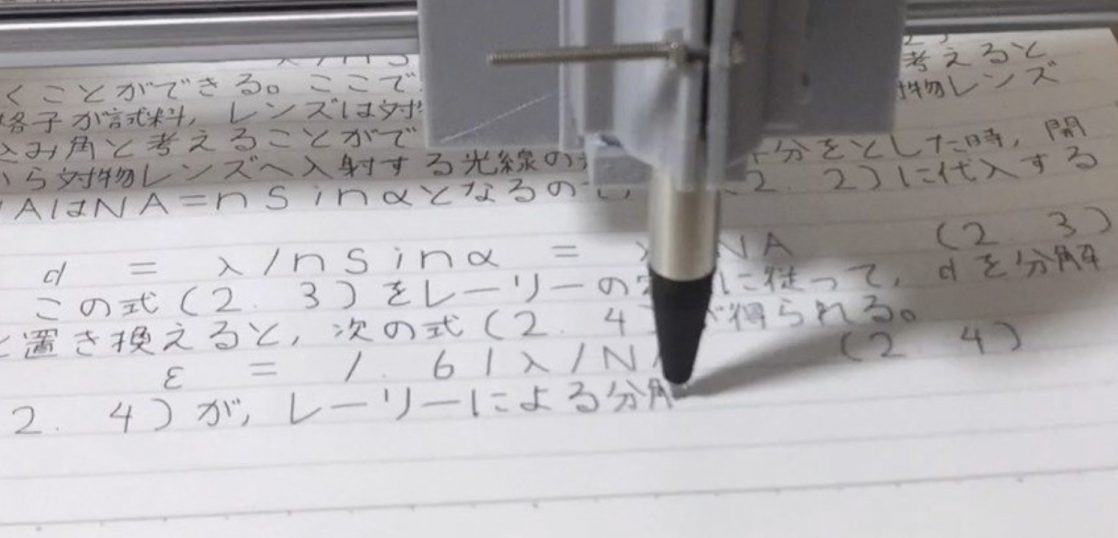 くことができる。ここで 考えると
格子が試料, レンズは対物レンズ
込み角と考えることがで 分をとした時, 開
から対物レンズへ入射する光線の 2. 2)に代入する
NA=nSinαとなるので,
d = λ/nSinα = NA (2 3)
この式(2. 3)をレーリーの に従って, dを分解
と置き換えると, 次の式(2. 4) 得られる。
ε = 1. 61λ/NA (2 4)
2. 4)が, レーリーによる分解